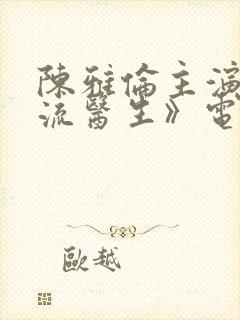 陳雅倫主演
流醫生》電
歐越